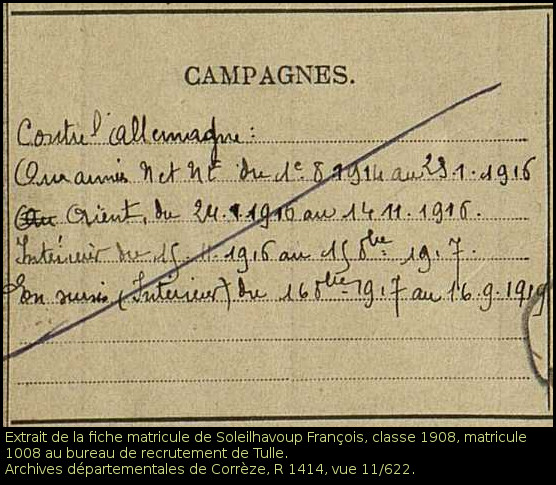 CAMPAGNES.
Contre l'allemagne :
Aux armées N et NE du 1e 8 1914 au 23.1.1916
Orient, du 24.1.1916 au 14.11.1916.
Intérieur du 15.11.1916 au 15 8bre 1917.
En sursis (Intérieur) du 16 8bre 1917 au 16.9.1919
Extrait de la fiche matricule de Soleilhavoup François, classe 1908, matricule
1008 au bureau de recrutement de Tulle.
Archives départementales de Corrèze, R 1414, vue 11/622.